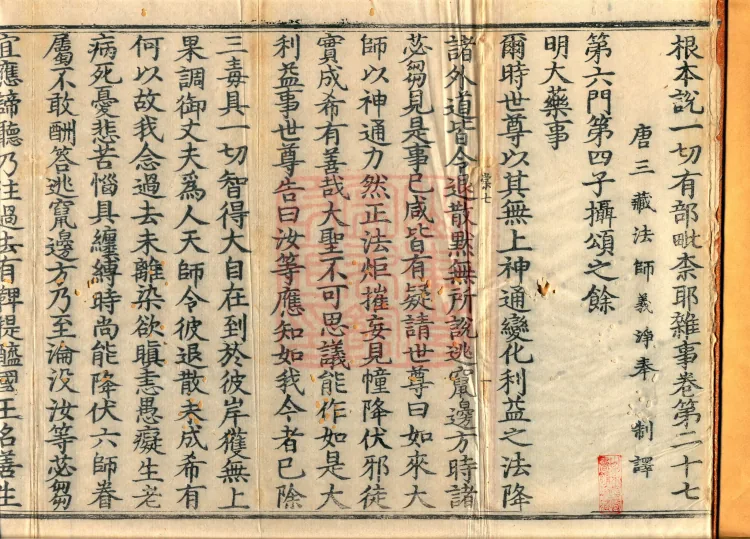 根本說一切有部毗柰耶雜事卷第二十七
唐三藏法師義淨奉 制譯
第六門第四子攝頌之餘
明大藥事
爾時世尊以其無上神通變化利益之法降
諸外道皆令退散默無所說逃竄邊方時諸
苾芻見是事已咸皆有疑請世尊曰如來大
師以神通力然正法炬摧妄見幢降伏邪徒
實成希有善哉大聖不可思議能作如是大
利益事世尊告曰汝等應知如我今者已除
三毒具一切智得大自在到於彼岸獲無上
果調御丈夫為人天師令彼退散未成希有
何以故我念過去未離染欲瞋恚愚癡生老
病死憂悲苦惱具纏縛時尚能降伏六師眷
屬不敢酬答逃竄邊方乃至淪沒汝等苾芻
宜應諦聽乃往過去有鞞提醯國王名善生